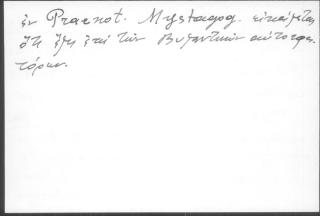 ἐν Praenot. Mystagog. εἰκάζεται
ὅτι ἔζη ἐπὶ τῶν Βυζαντινῶν αὐτοκρα-
τόρων.